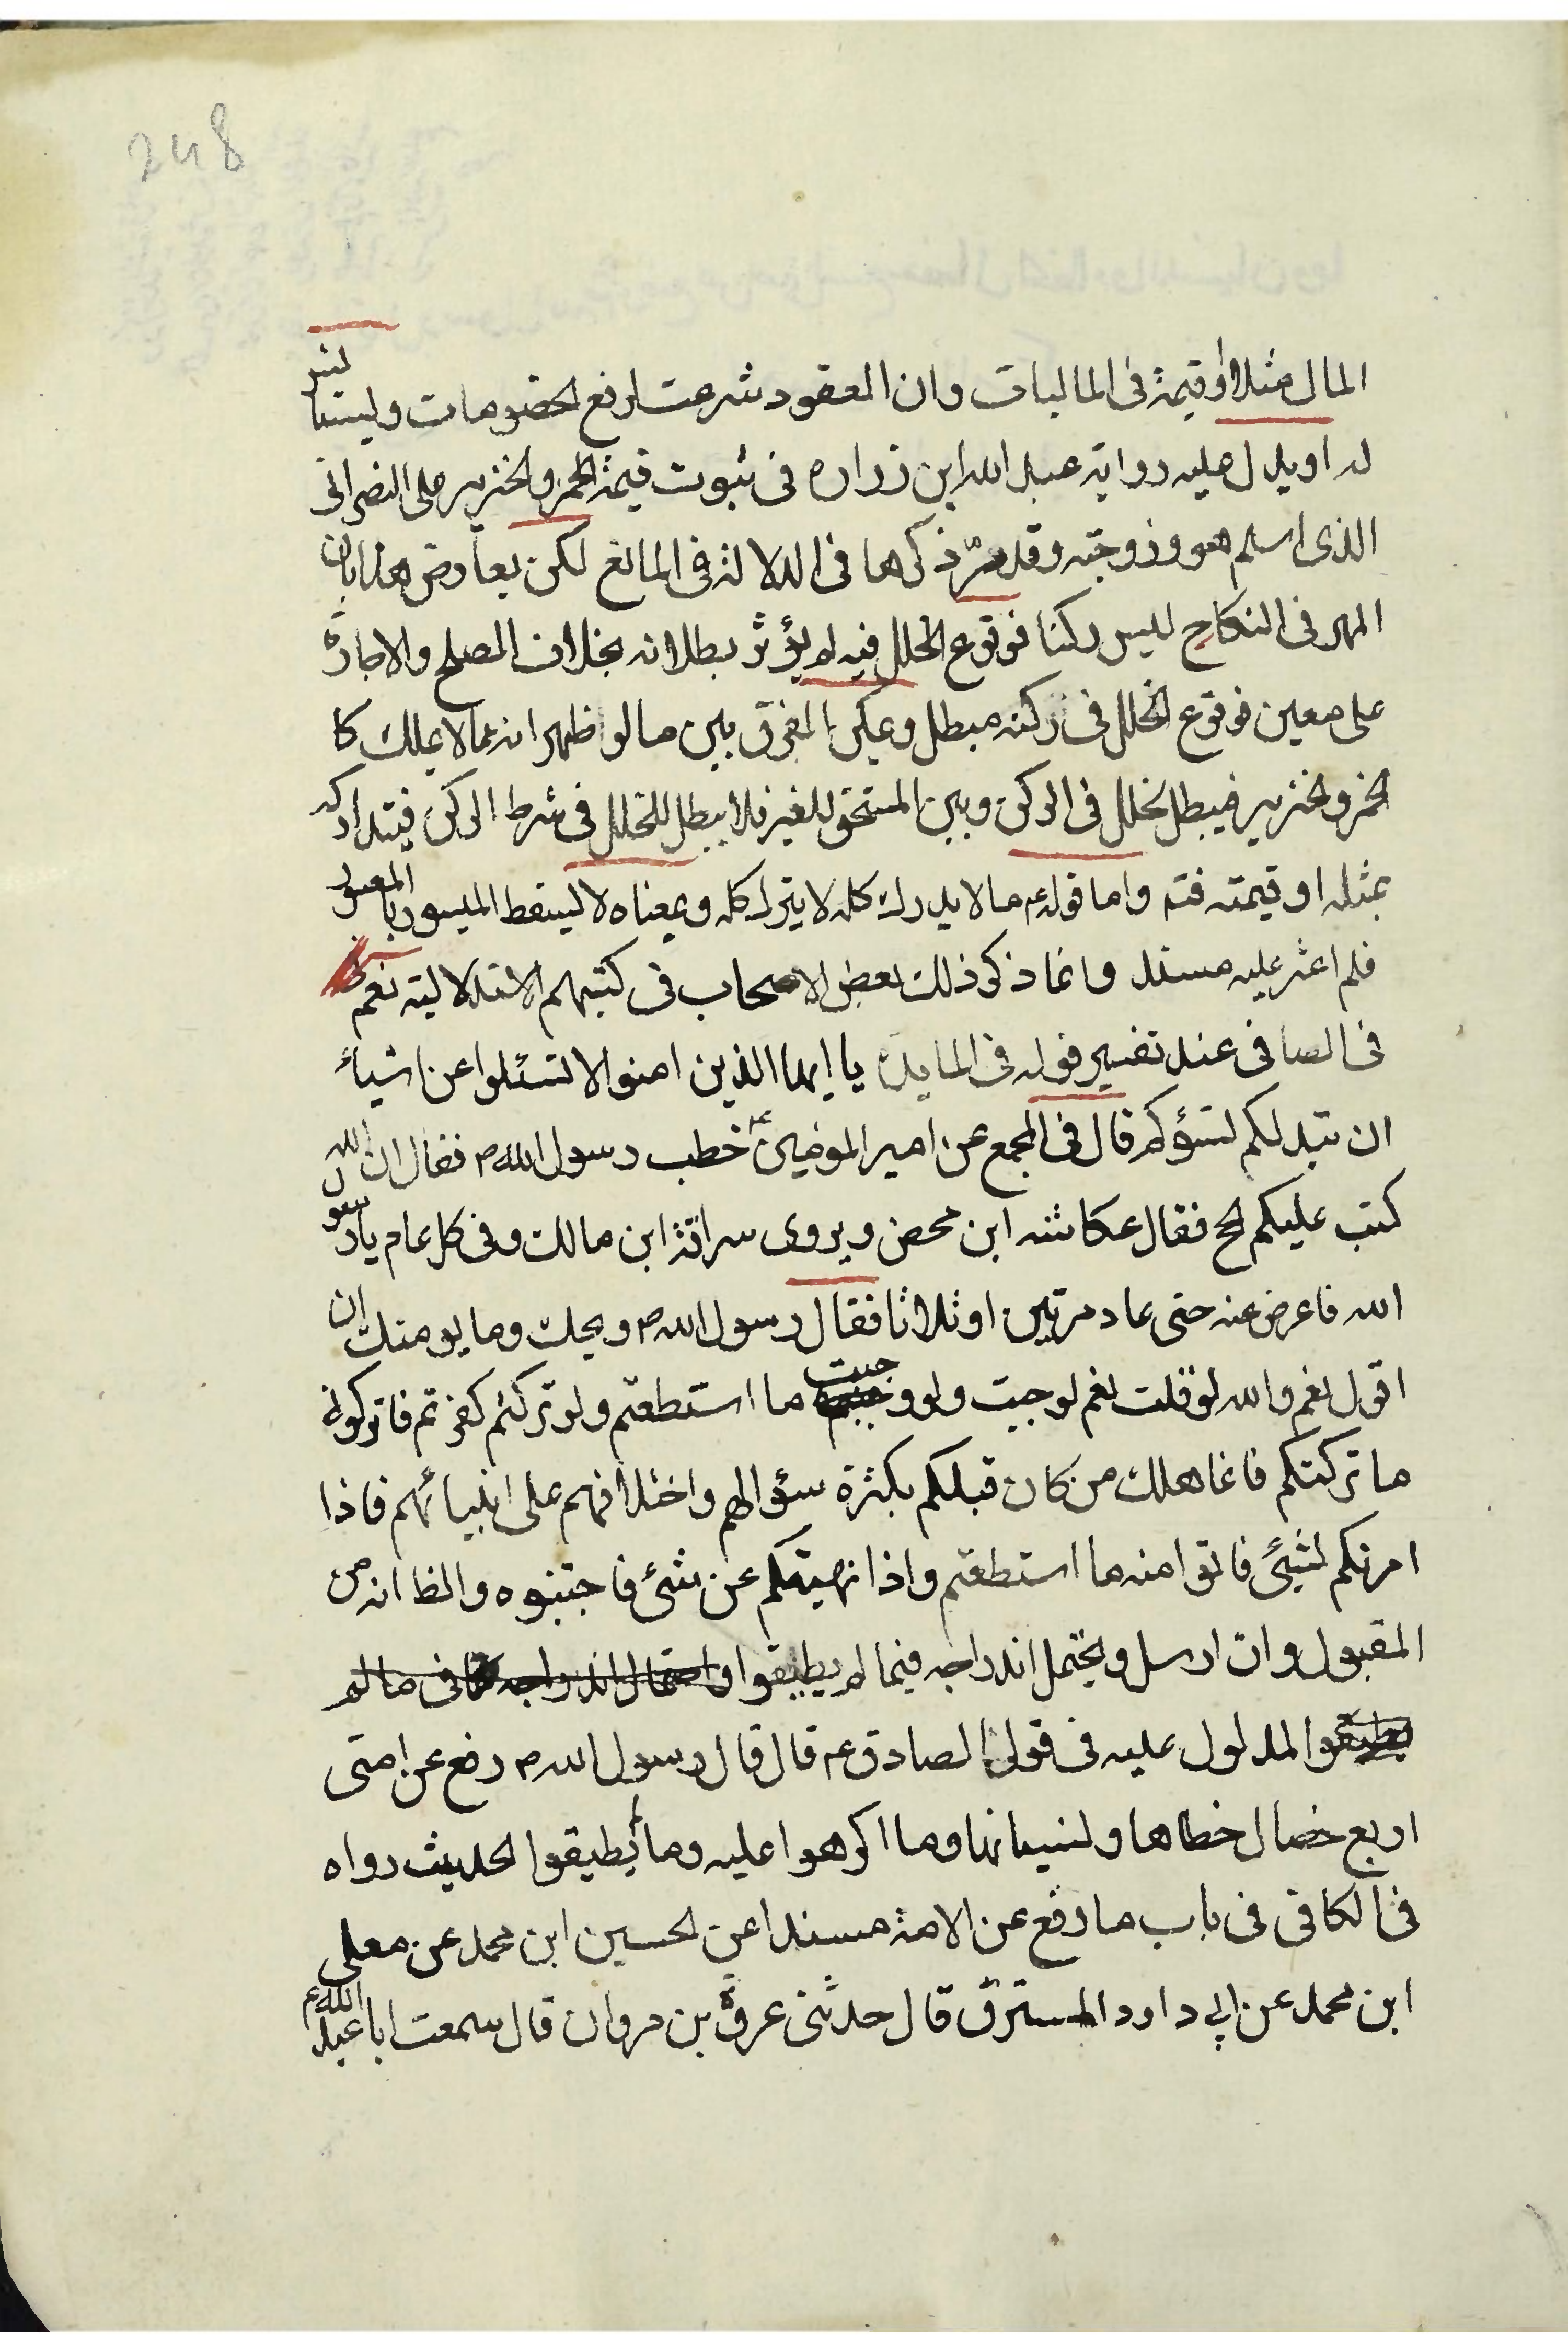 248
المال مثلا او قيمة فى الماليات وان العقود شرعت لرفع الخصومات وليستا
له او يدل عليه رواية عبد الله ابن زراره فى ثبوت قيمة الخمر والخنزير على النصرانى
الذى اسلم هو وزوجته وقد مرّ ذكرها فى الدلالة فى المانع لكن يعارض هذا بان
المهر فى النكاح ليس ركنا فوقوع الخلل فيه لم يؤثر بطلانه بخلاف الصلح والاجارة
على معين فوقوع الخلل فى ركنه مبطل ويمكن الفرق بين ما لو ظهر انه مما لا يملك كا
لخمر والخنزير فيبطل لخلل فى الركن وبين المستحق للغير فلا يبطل للخلل فى شرط الركن فيتداركه
بمثله او قيمته فتم واما قوله ع ما لا يدرك كله لا يترك كله وبمعناه لا يسقط الميسور بالمعسور
فلم اعثر عليه مسند وانما ذكر ذلك بعض الاصحاب فى كتبهم الاستدلالية نعم
فى الصافى عند تفسير قوله فى المايدة يا ايها الذين امنوا لا تسئلوا عن اشياء
ان تبد لكم تسؤكم قال فى المجمع عن امير المؤمنين ع خطب رسول الله ص فقال ان الله
كتب عليكم الحج فقال عكاشه ابن محصن ويروى سراقة ابن مالك وفى كل عام يا رسول
الله فاعرض عنه حتى عاد مرتين او ثلاثا فقال رسول الله ص ويحك وما يومنك ان
اقول نعم والله لو قلت نعم لوجبت ولو وجبت ما استطعتم ولو تركتم كفرتم فاتركونى
ما تركتكم فانما هلك من كان قبلكم بكثرة سؤالهم واختلافهم على انبيائهم فاذا
امرتكم بشيئ فاتوا منه ما استطعتم واذا نهيتكم عن شئ فاجتنبوه والظ انه من
المقبول وان ارسل ويحتمل اندراجه فيما لم يطيقوا واحتمال اندراجه فى ما لم
يطيقوا المدلول عليه فى قول الصادق ع قال قال رسول الله ص رفع عن امتى
اربع خصال خطاها ونسيانها وما اكرهوا عليه وما لم يطيقوا الحديث رواه
فى الكافى فى باب ما رفع عن الامة مسندا عن الحسين ابن محمد عن معلى
ابن محمد عن ابى داود المسترق قال حدثنى عروة بن مروان قال سمعت ابا عبد الله ع